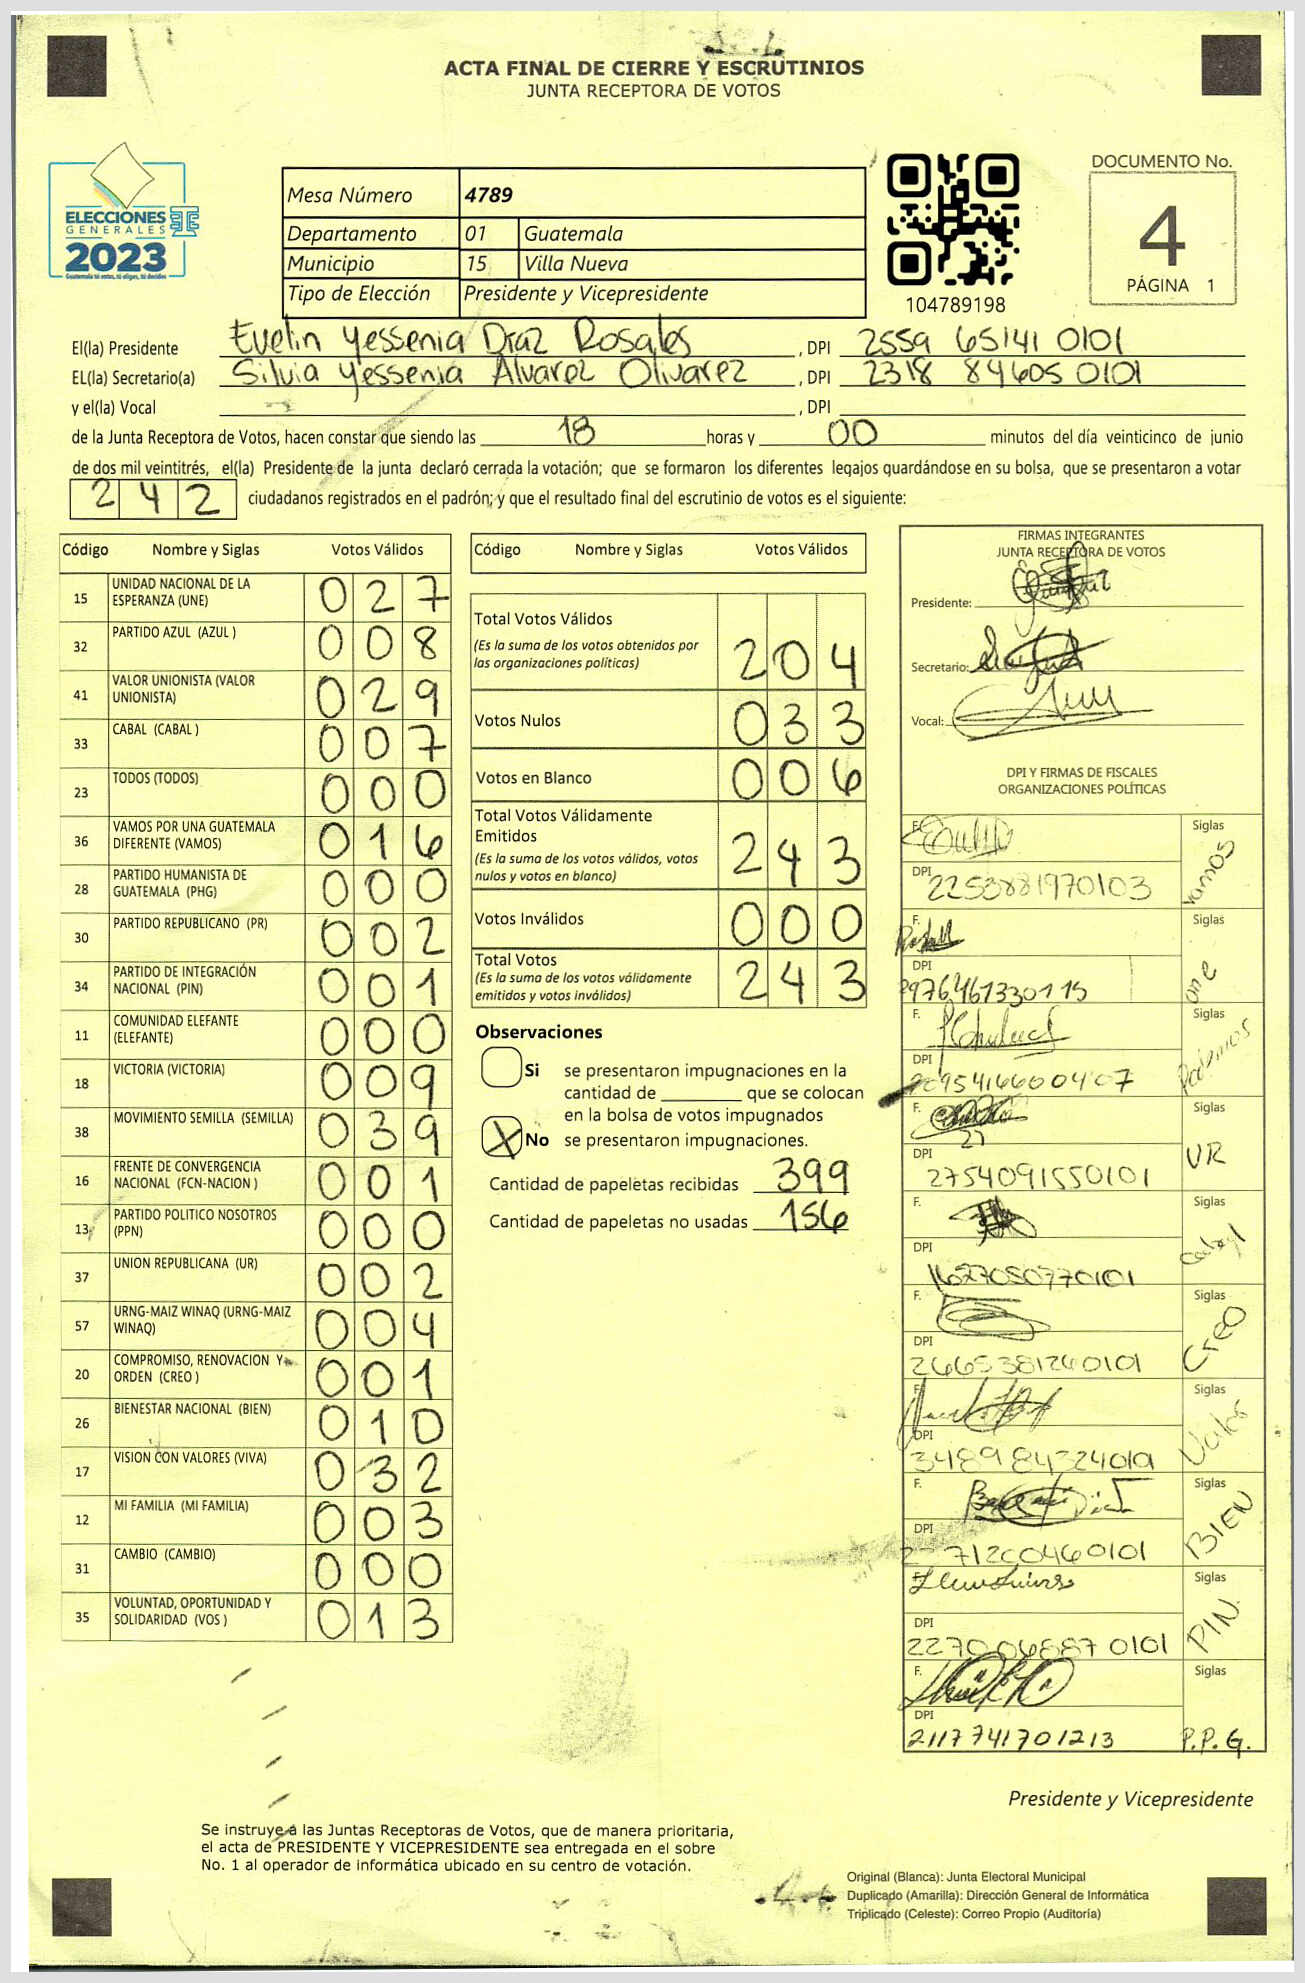 ACTA FINAL DE CIERRE Y ESCRUTINIOS
JUNTA RECEPTORA DE VOTOS
ELECCIONES
GENERALES
2023
Guatemala tú votas, tú eliges, tú decides
Mesa Número 4789
Departamento 01 Guatemala
Municipio 15 Villa Nueva
Tipo de Elección Presidente y Vicepresidente
104789198
DOCUMENTO No.
4
PÁGINA 1
El(la) Presidente Evelin Yessenia Diaz Rosales , DPI 2559 65141 0101
EL(la) Secretario(a) Silvia Yessenia Alvarez Olivarez , DPI 2318 84605 0101
y el(la) Vocal , DPI
de la Junta Receptora de Votos, hacen constar que siendo las 18 horas y 00 minutos del día veinticinco de junio
de dos mil veintitrés, el(la) Presidente de la junta declaró cerrada la votación; que se formaron los diferentes legajos guardándose en su bolsa, que se presentaron a votar
242 ciudadanos registrados en el padrón; y que el resultado final del escrutinio de votos es el siguiente:
Código Nombre y Siglas Votos Válidos
15 UNIDAD NACIONAL DE LA ESPERANZA (UNE) 027
32 PARTIDO AZUL (AZUL ) 008
41 VALOR UNIONISTA (VALOR UNIONISTA) 029
33 CABAL (CABAL ) 007
23 TODOS (TODOS) 000
36 VAMOS POR UNA GUATEMALA DIFERENTE (VAMOS) 016
28 PARTIDO HUMANISTA DE GUATEMALA (PHG) 000
30 PARTIDO REPUBLICANO (PR) 002
34 PARTIDO DE INTEGRACIÓN NACIONAL (PIN) 001
11 COMUNIDAD ELEFANTE (ELEFANTE) 000
18 VICTORIA (VICTORIA) 009
38 MOVIMIENTO SEMILLA (SEMILLA) 039
16 FRENTE DE CONVERGENCIA NACIONAL (FCN-NACION ) 001
13 PARTIDO POLITICO NOSOTROS (PPN) 000
37 UNION REPUBLICANA (UR) 002
57 URNG-MAIZ WINAQ (URNG-MAIZ WINAQ) 004
20 COMPROMISO, RENOVACION Y ORDEN (CREO ) 001
26 BIENESTAR NACIONAL (BIEN) 010
17 VISION CON VALORES (VIVA) 032
12 MI FAMILIA (MI FAMILIA) 003
31 CAMBIO (CAMBIO) 000
35 VOLUNTAD, OPORTUNIDAD Y SOLIDARIDAD (VOS ) 013
Código Nombre y Siglas Votos Válidos
Total Votos Válidos
(Es la suma de los votos obtenidos por las organizaciones políticas) 204
Votos Nulos 033
Votos en Blanco 006
Total Votos Válidamente Emitidos
(Es la suma de los votos válidos, votos nulos y votos en blanco) 243
Votos Inválidos 000
Total Votos
(Es la suma de los votos válidamente emitidos y votos inválidos) 243
Observaciones
Si se presentaron impugnaciones en la
cantidad de que se colocan
en la bolsa de votos impugnados
X No se presentaron impugnaciones.
Cantidad de papeletas recibidas 399
Cantidad de papeletas no usadas 156
FIRMAS INTEGRANTES
JUNTA RECEPTORA DE VOTOS
Presidente:
Secretario:
Vocal:
DPI Y FIRMAS DE FISCALES
ORGANIZACIONES POLÍTICAS
F. Siglas vamos
DPI 2253881970103
F. Siglas une
DPI 2976461330115
F. Siglas
DPI 2095416600407
F. Siglas UR
DPI 2754091550101
F. Siglas Cabal
DPI 1627050770101
F. Siglas Creo
DPI 2665381240101
F. Siglas Valor
DPI
F. Siglas BIEN
DPI 71200460101
F. Siglas PIN
DPI 2270068870101
F. Siglas P.P.G.
DPI 2117741701213
Presidente y Vicepresidente
Se instruye a las Juntas Receptoras de Votos, que de manera prioritaria,
el acta de PRESIDENTE Y VICEPRESIDENTE sea entregada en el sobre
No. 1 al operador de informática ubicado en su centro de votación.
Original (Blanca): Junta Electoral Municipal
Duplicado (Amarilla): Dirección General de Informática
Triplicado (Celeste): Correo Propio (Auditoría)